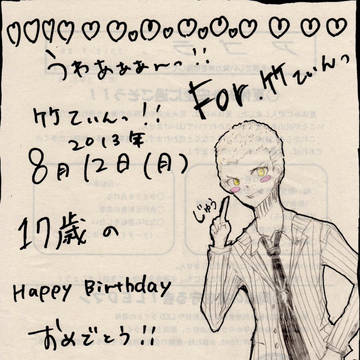 ♡♡♡♡♡♡♡♡♡♡♡♡♡♡
うわぁぁぁ〜っ!!
For.竹てぃんっ
竹てぃんっ!!
2013年
8月12日(月)
じゃら
17歳の
Happy Birthday
おめでとう!!